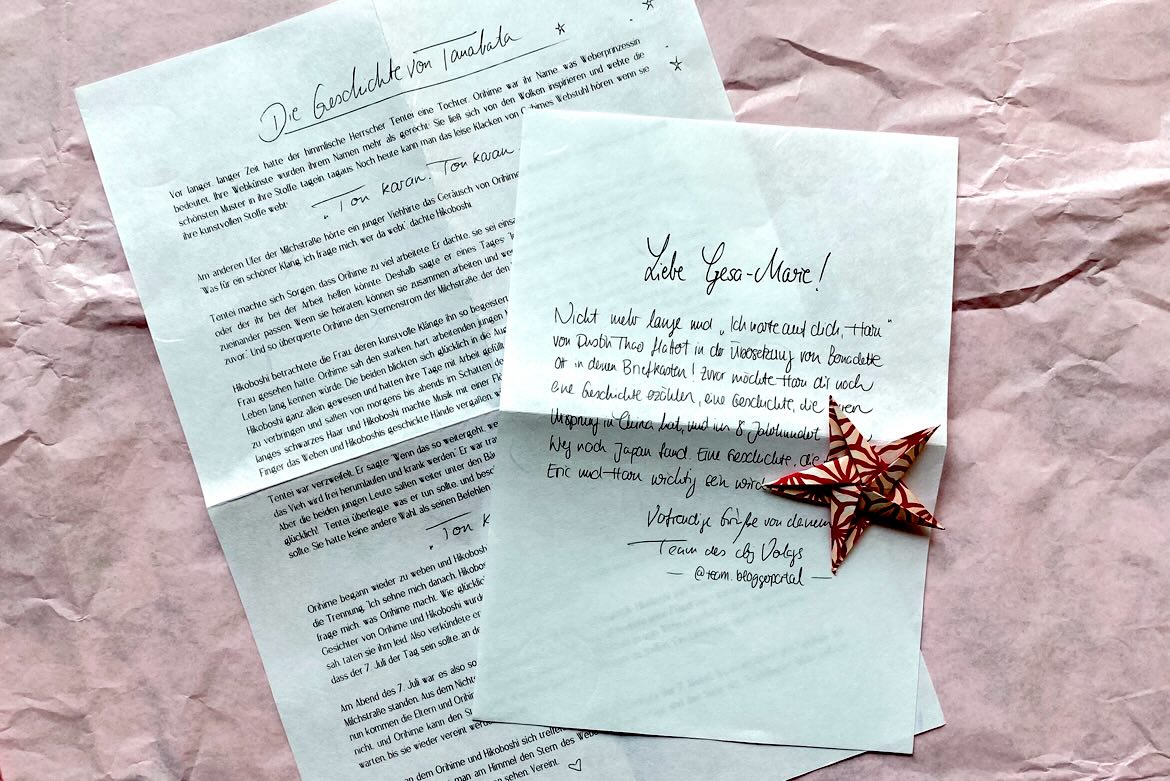 Die Geschichte von Tanabata
Vor langer, langer Zeit hatte der himmlische Herrscher Tentei eine Tochter. Orihime war ihr Name was Weberprinzessin
bedeutet. Ihre Webkünste wurden ihrem Namen mehr als gerecht: Sie ließ sich von den Wolken inspirieren und webte die
schönsten Muster in ihre Stoffe tagein tagaus. Noch heute kann man das leise Klacken von Orihimes Webstuhl hören, wenn sie
ihre kunstvollen Stoffe webt:
"Ton karan. Ton karan
Am anderen Ufer der Milchstraße hörte ein junger Viehhirte das Geräusch von Orihime
Was für ein schöner Klang, ich frage mich, wer da webt, dachte Hikoboshi.
Tentei machte sich Sorgen dass Orihime zu viel arbeitete. Er dachte, sie sei einsam
oder der ihr bei der Arbeit helfen könnte. Deshalb sagte er eines Tages
zueinander passen. Wenn sie heiraten können sie zusammen arbeiten und
zuvor." Und so überquerte Orihime den Sternenstrom der Milchstraße der den
Hikoboshi betrachtete die Frau deren kunstvolle Klänge ihn so
Frau gesehen hatte. Orihime sah den starken, hart arbeitenden jungen
Leben lang kennen würde. Die beiden blickten sich glücklich in die
Hikoboshi ganz allein gewesen und hatten ihre Tage mit Arbeit
zu verbringen und saßen von morgens bis abends im Schatten
langes schwarzes Haar und Hikoboshi machte Musik mit einer
Finger das Weben und Hikoboshis geschickte Hände vergaßen
Tentei war verzweifelt. Er sagte "Wenn das so weitergeht,
das Vieh wird frei herumlaufen und krank werden. Er war
Aber die beiden jungen Leute saßen weiter unter den
glücklich!" Tentei überlegte, was er tun sollte, und
sollte. Sie hatte keine andere Wahl als seinen Befehlen
"Ton
Orihime begann wieder zu weben und Hikoboshi
die Trennung. Ich sehne mich danach, Hikoboshi
frage mich, was Orihime macht. Wie
Gesichter von Orihime und Hikoboshi
sah, taten sie ihm leid. Also verkündete
dass der 7. Juli der Tag sein sollte, an
Am Abend des 7. Juli war es also so
Milchstraße standen. Aus dem
nun kommen die Eltern und
nicht, und Orihime kann den
warten, bis sie wieder vereint
an dem Orihime und Hikoboshi sich
man am Himmel den Stern des
sehen. Vereint. ♡
Liebe Gesa-Marie!
Nicht mehr lange und „Ich warte auf dich, Haru"
von Dustin Thao flattert in der Übersetzung von Bernadette
Ott in deinen Briefkasten! Zuvor möchte Haru dir noch
eine Geschichte erzählen, eine Geschichte, die
Ursprung in China hat, und im 8. Jahrhundert
Weg nach Japan fand. Eine Geschichte, die
Eric und Haru wichtig sein wird
Vorfreudige Grüße von deinem
Team des cbj Verlags
— @team.bloggerportal —